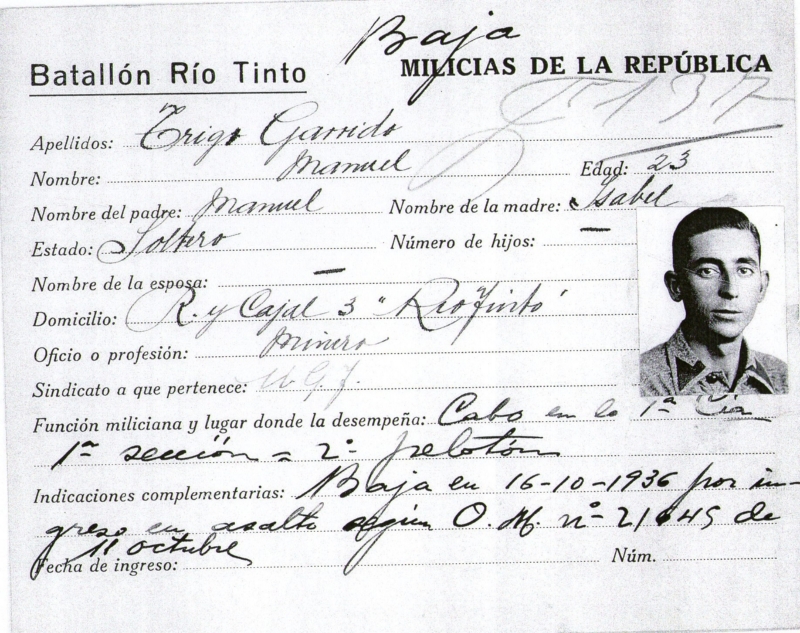 Baja
Batallón Río Tinto
MILICIAS DE LA REPÚBLICA
137
Apellidos: Trigo Garrido
Nombre: Manuel Edad: 23
Nombre del padre: Manuel Nombre de la madre: Isabel
Estado: Soltero Número de hijos: —
Nombre de la esposa: —
Domicilio: R. y Cajal 3 "Rio Tinto"
Oficio o profesión: Minero
Sindicato a que pertenece: U.G.T.
Función miliciana y lugar donde la desempeña: Cabo en la 1ª Cía
1ª sección = 2º pelotón
Indicaciones complementarias: Baja en 16-10-1936 por in-
greso en asalto según O. M. nº 21645 de
11 octubre
Fecha de ingreso: Núm.